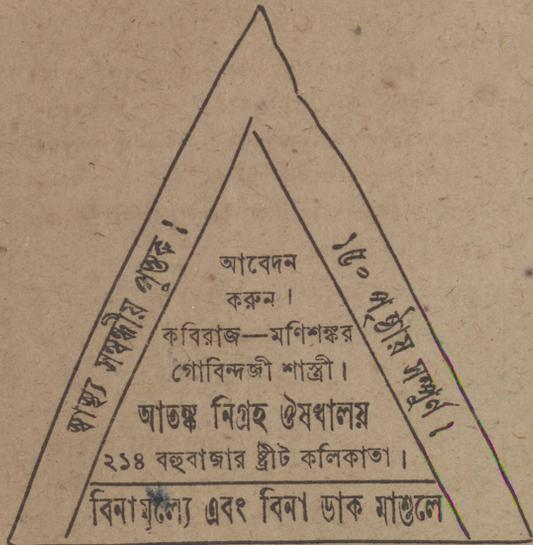 স্বাস্থ্য সম্বন্ধীয় পুস্তক !
১৫০ পৃষ্ঠায় সম্পূর্ণ।
আবেদন
করুন।
কবিরাজ—মণিশঙ্কর
গোবিন্দজী শাস্ত্রী।
আতঙ্ক নিগ্রহ ঔষধালয়
২১৪ বহুবাজার ষ্ট্রীট কলিকাতা।
বিনামূল্যে এবং বিনা ডাক মাশুলে